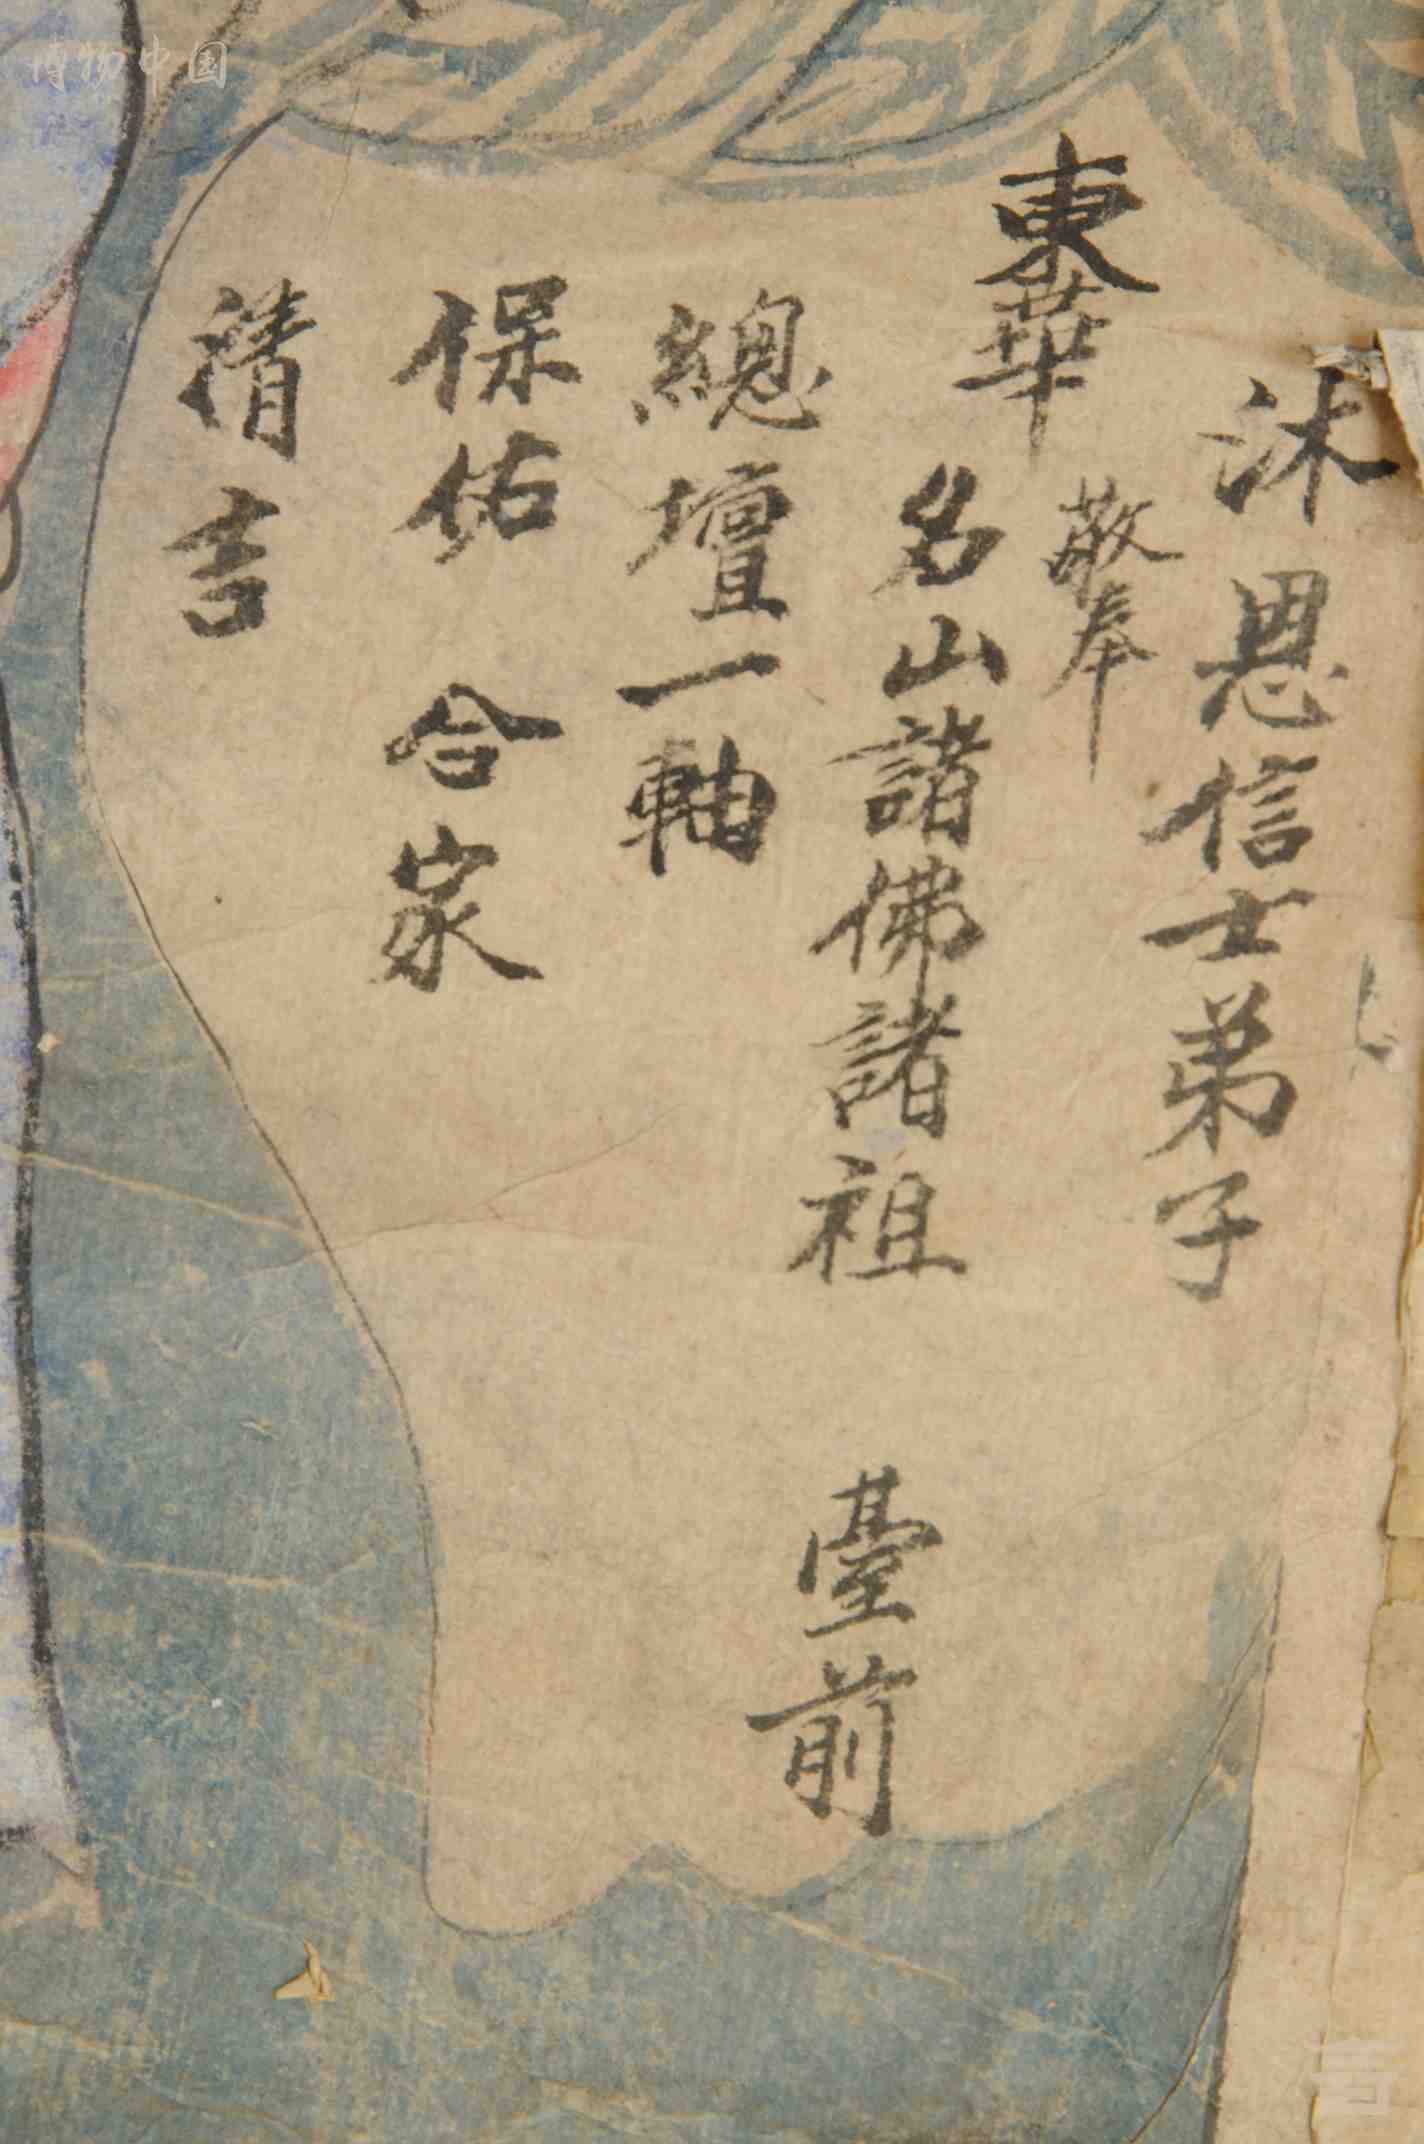 沐恩信士弟子
敬奉
東華
名山諸佛諸祖 臺前
總壇一軸
保佑 合家
清吉
博物中国